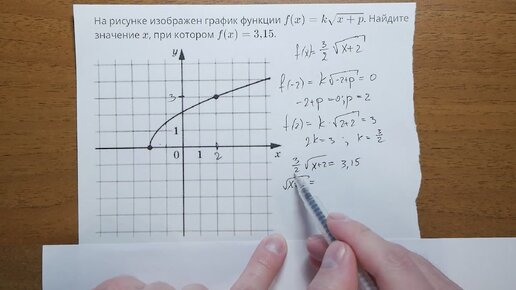 На рисунке изображен график функции f(x) = k√(x + p). Найдите
значение x, при котором f(x) = 3,15.
y
3
1
0
1
2
x
f(x)= 3/2 √(x+2)
f(-2) = k √(-2+p) = 0
-2+p = 0; p = 2
f(2) = k · √(2+2) = 3
2k = 3 ; k = 3/2
3/2 √(x+2) = 3,15
=